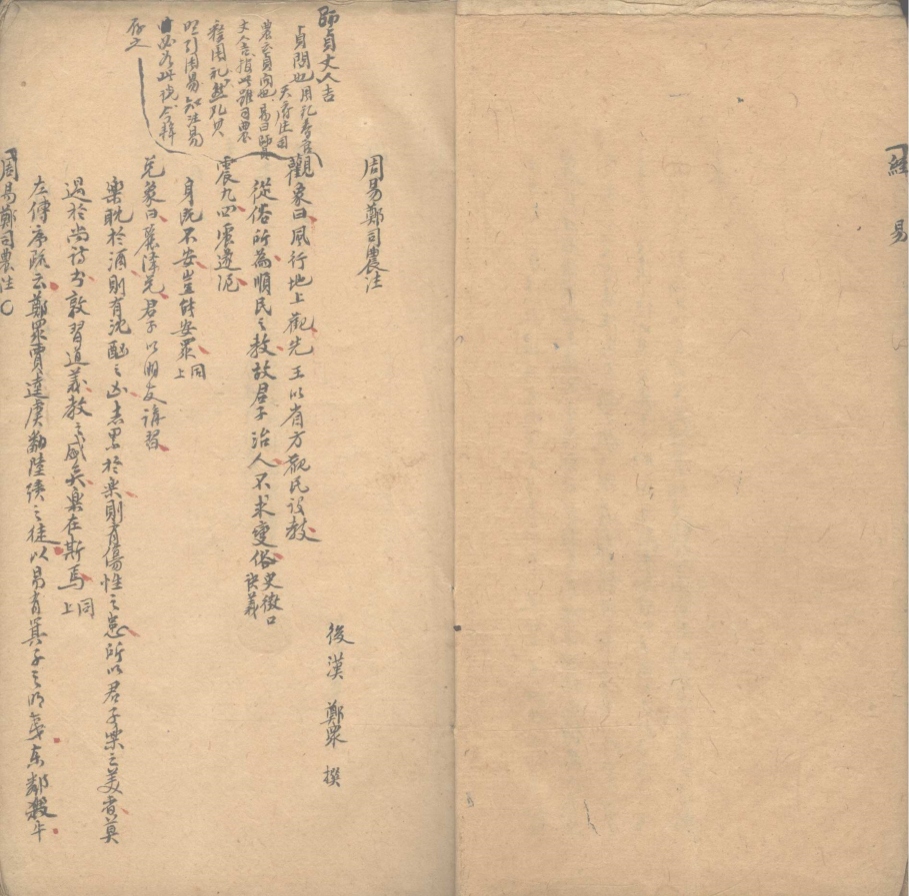 經 易
周易鄭司農注
後漢 鄭衆 撰
師貞丈人吉
貞問也周礼春官
天府注引
農云貞問也易曰師貞
丈人吉
觀象曰風行地上觀先王以省方觀民設教
從俗所為順民之教故君子治人不求變俗史徵口訣義
震九四震遂泥
身既不安豈能安眾同上
兌象曰麗澤兌君子以朋友講習
樂耽於酒則有沈酗之凶志累於樂則有傷性之患所以君子樂之美者莫
過於尚詩書敦習道義教之盛矣樂在斯焉同上
左傳序疏云鄭眾賈逵虞翻陸績之徒以易有箕子之明夷東鄰殺牛
周易鄭司農注